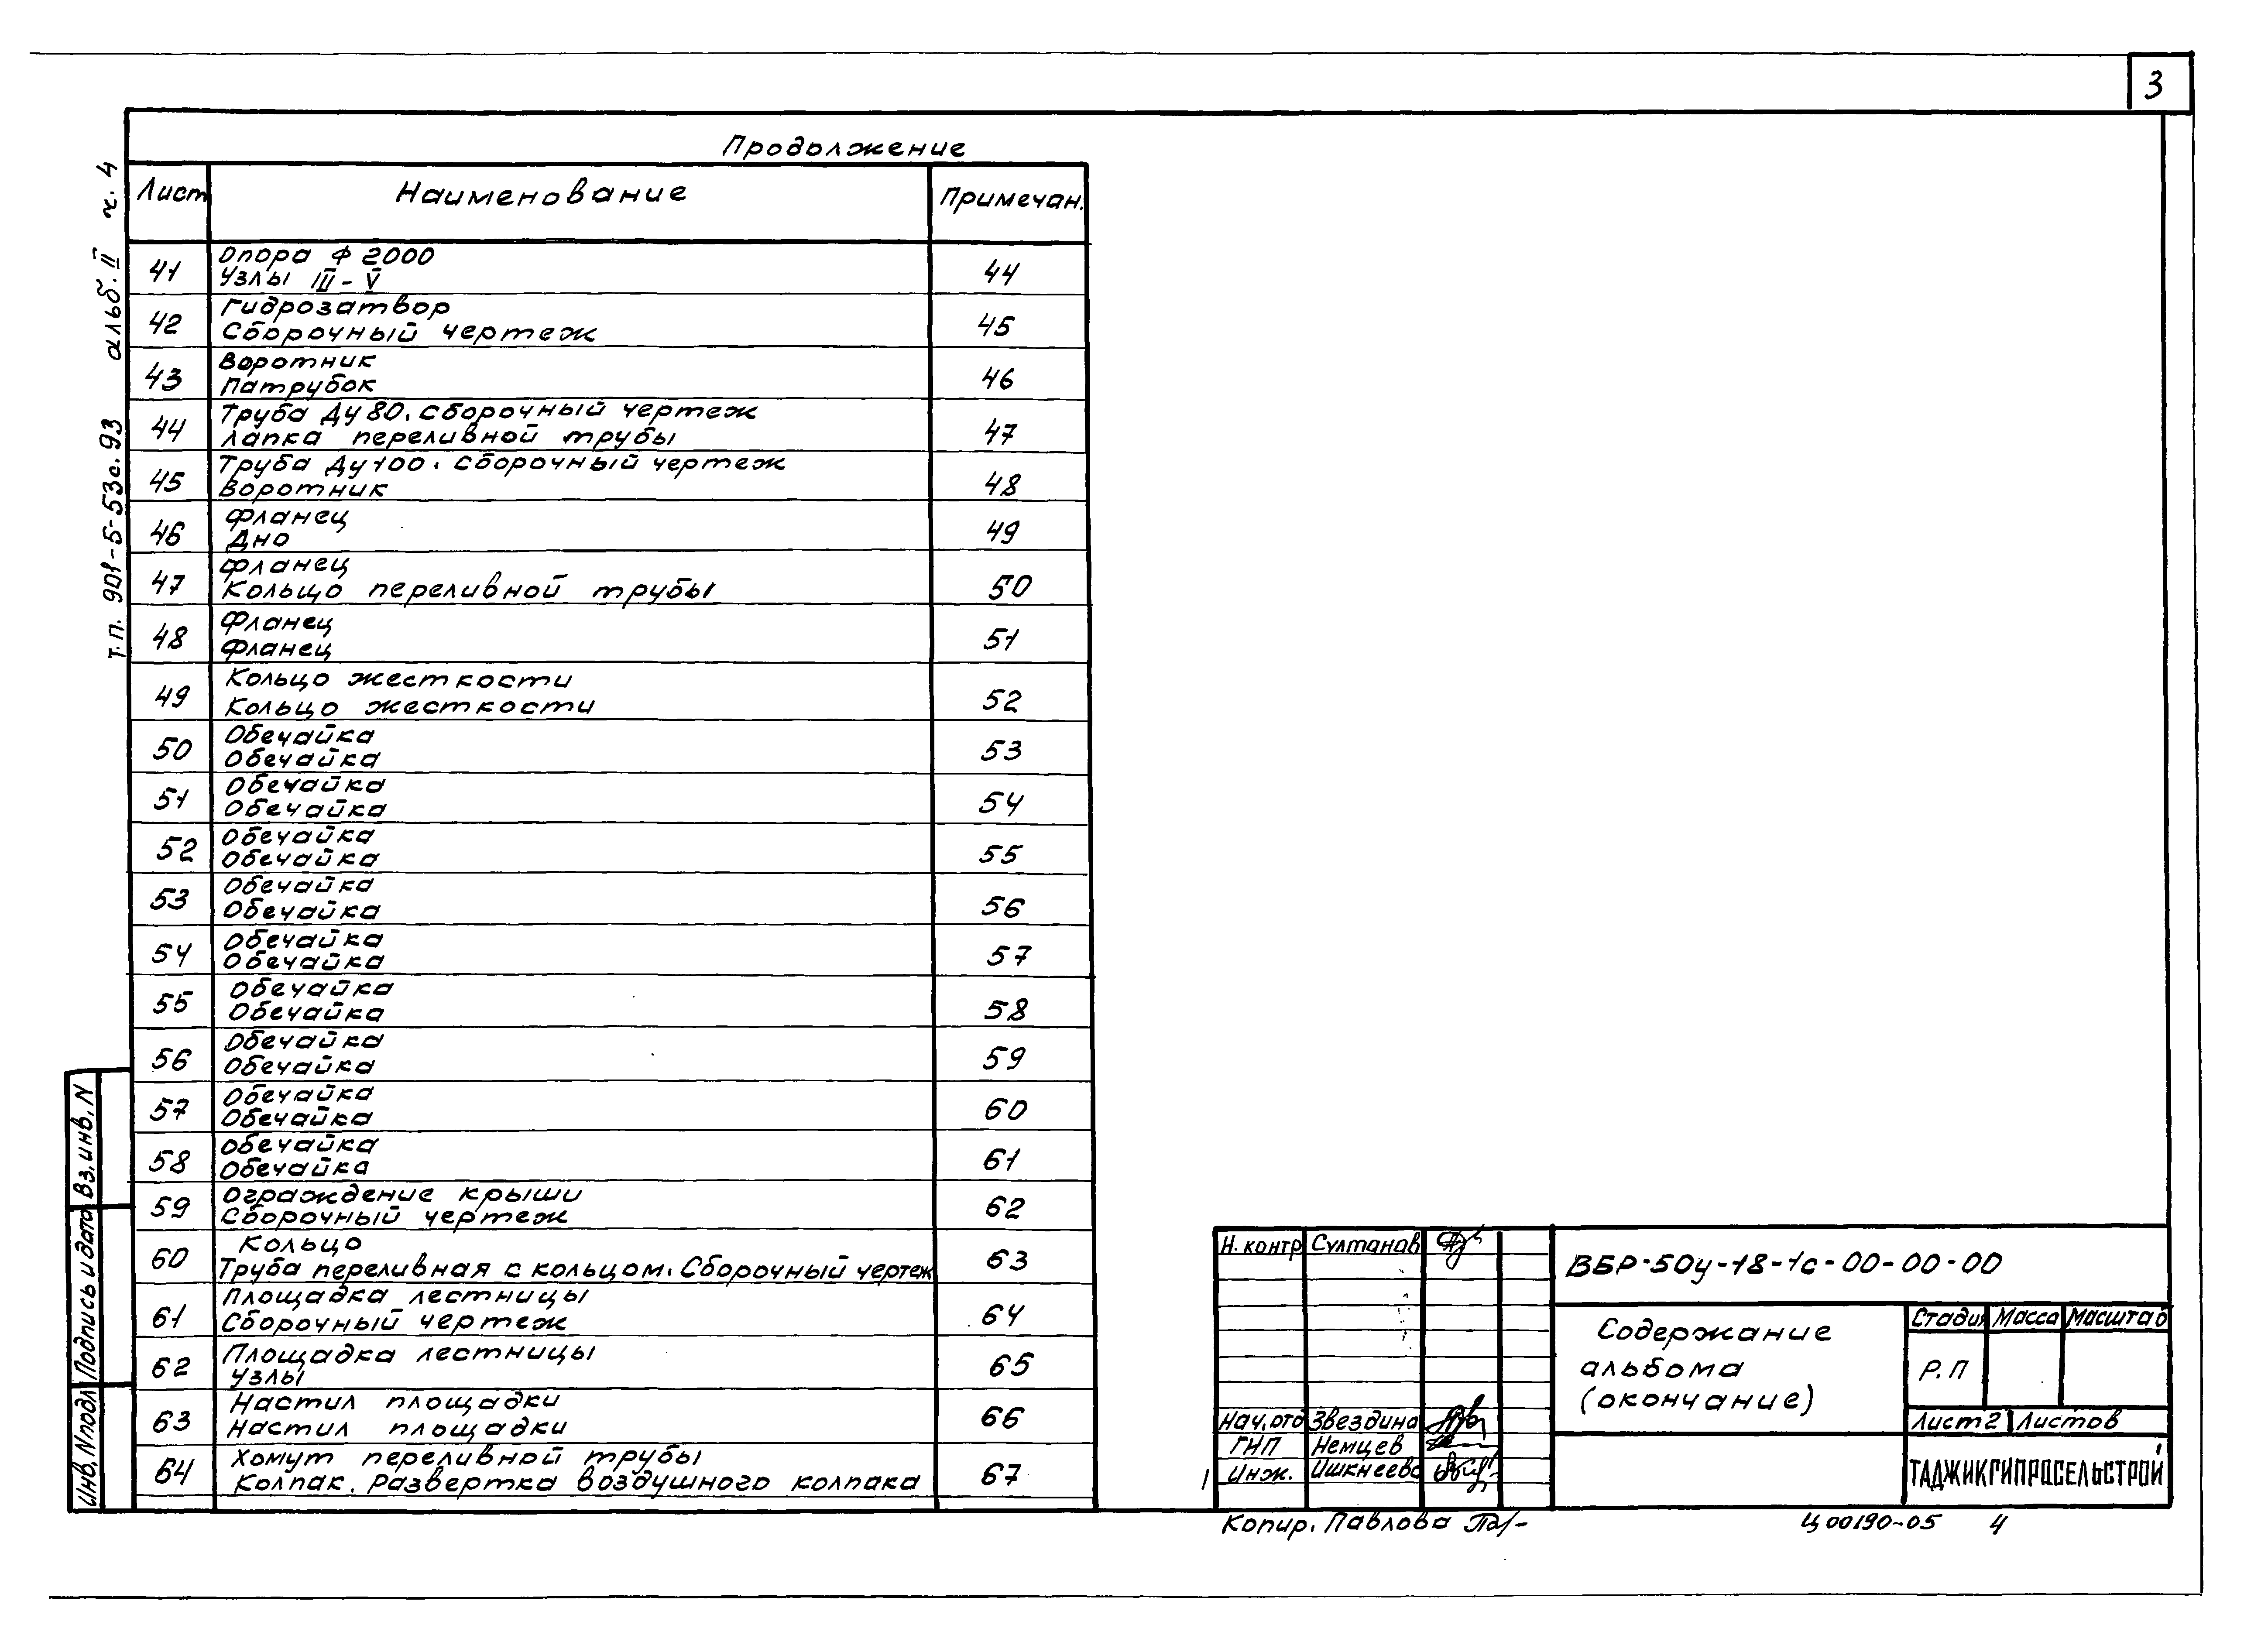 3
Продолжение
Лист Наименование Примечан.
41 Опора ф 2000 44
Узлы III - V
42 Гидрозатвор 45
Сборочный чертеж
43 Воротник 46
Патрубок
44 Труба Ду 80. Сборочный чертеж 47
Лапка переливной трубы
45 Труба Ду 100. Сборочный чертеж 48
Воротник
46 Фланец 49
Дно
47 Фланец 50
Кольцо переливной трубы
48 Фланец 51
Фланец
49 Кольцо жесткости 52
Кольцо жесткости
50 Обечайка 53
Обечайка
51 Обечайка 54
Обечайка
52 Обечайка 55
Обечайка
53 Обечайка 56
Обечайка
54 Обечайка 57
Обечайка
55 Обечайка 58
Обечайка
56 Обечайка 59
Обечайка
57 Обечайка 60
Обечайка
58 Обечайка 61
Обечайка
59 Ограждение крыши 62
Сборочный чертеж
60 Кольцо 63
Труба переливная с кольцом. Сборочный чертеж
61 Площадка лестницы 64
Сборочный чертеж
62 Площадка лестницы 65
Узлы
63 Настил площадки 66
Настил площадки
64 Хомут переливной трубы 67
Колпак. Развертка воздушного колпака
т.п. 901-5-53с.93 альб. II ч. 4
Вз. инв. N
Подпись и дата
Инв. N подл
Н. контр Султанав
Нач. отд Звездина
ГИП Немцев
Инж. Ишкнеева
ВБР-50у-18-1с-00-00-00
Содержание
альбома
(окончание)
Стадия Масса Масштаб
Р.П
Лист 2 Листов
ТАДЖИКГИПРОСЕЛЬСТРОЙ
1
Копир. Павлова
Ц00190-05 4